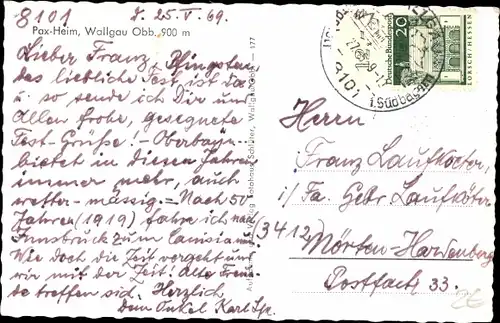 8101 d. 25. V. 69.
Pax-Heim, Wallgau Obb. 900 m
Lieber Franz, Pfingsten,
das liebliche Fest ist da
u. so sende ich Dir und
Allen frohe, gesegnete
Fest-Grüße! - Oberbayern
bietet in diesen Jahren
immer mehr, auch
wetter-mässig. - Nach 50
Jahren (1919) fahre ich nach
Innsbruck zum Canisianum.
Wie doch die Zeit vergeht und
wir mit der Zeit! Alte Freunde
treffen sich. Herzlich
Dein Onkel Karl
177
8101
20
Deutsche Bundespost
LORSCH / HESSEN
Herrn
Franz Laufkoetter,
i/ Fa. Gebr. Laufköter
(3412)
Mörten-Hardenberg
Postfach 33.